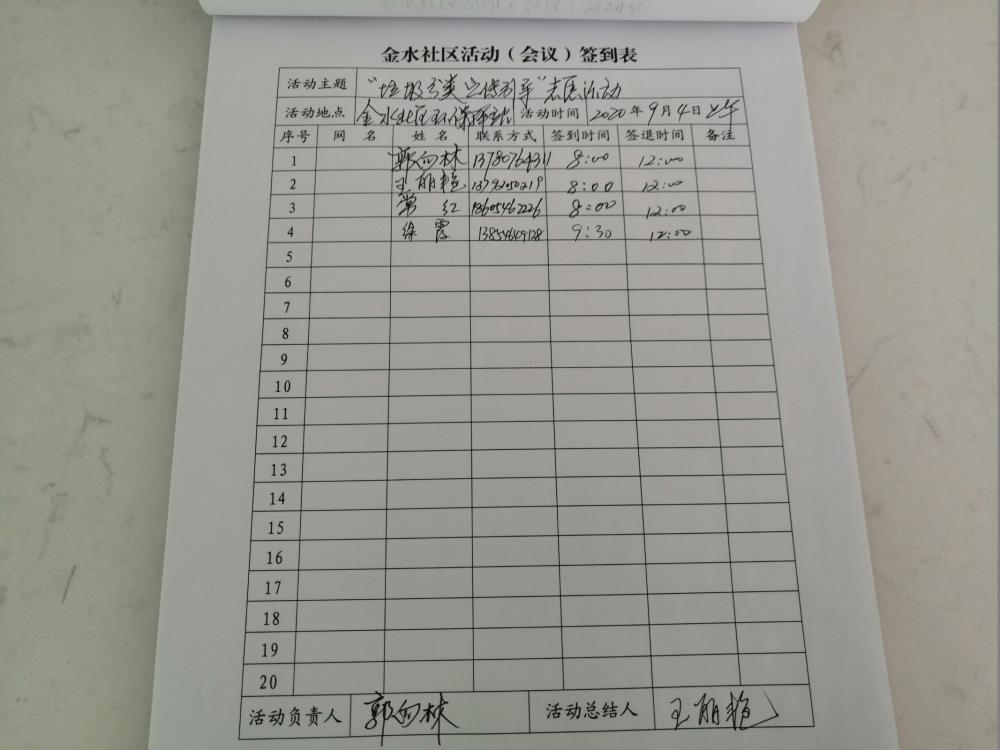 金水社区活动（会议）签到表
活动主题 “垃圾分类宣传引导”志愿活动
活动地点 金水社区环保 活动时间 2020年9月4日上午
序号 网名 姓名 联系方式 签到时间 签退时间 备注
1 郭向林 13780764311 8:00 12:00
2 王丽艳 8:00 12:00
3 常红 18605462226 8:00 12:00
4 徐霞 9:30 12:00
5
6
7
8
9
10
11
12
13
14
15
16
17
18
19
20
活动负责人 郭向林 活动总结人 王丽艳